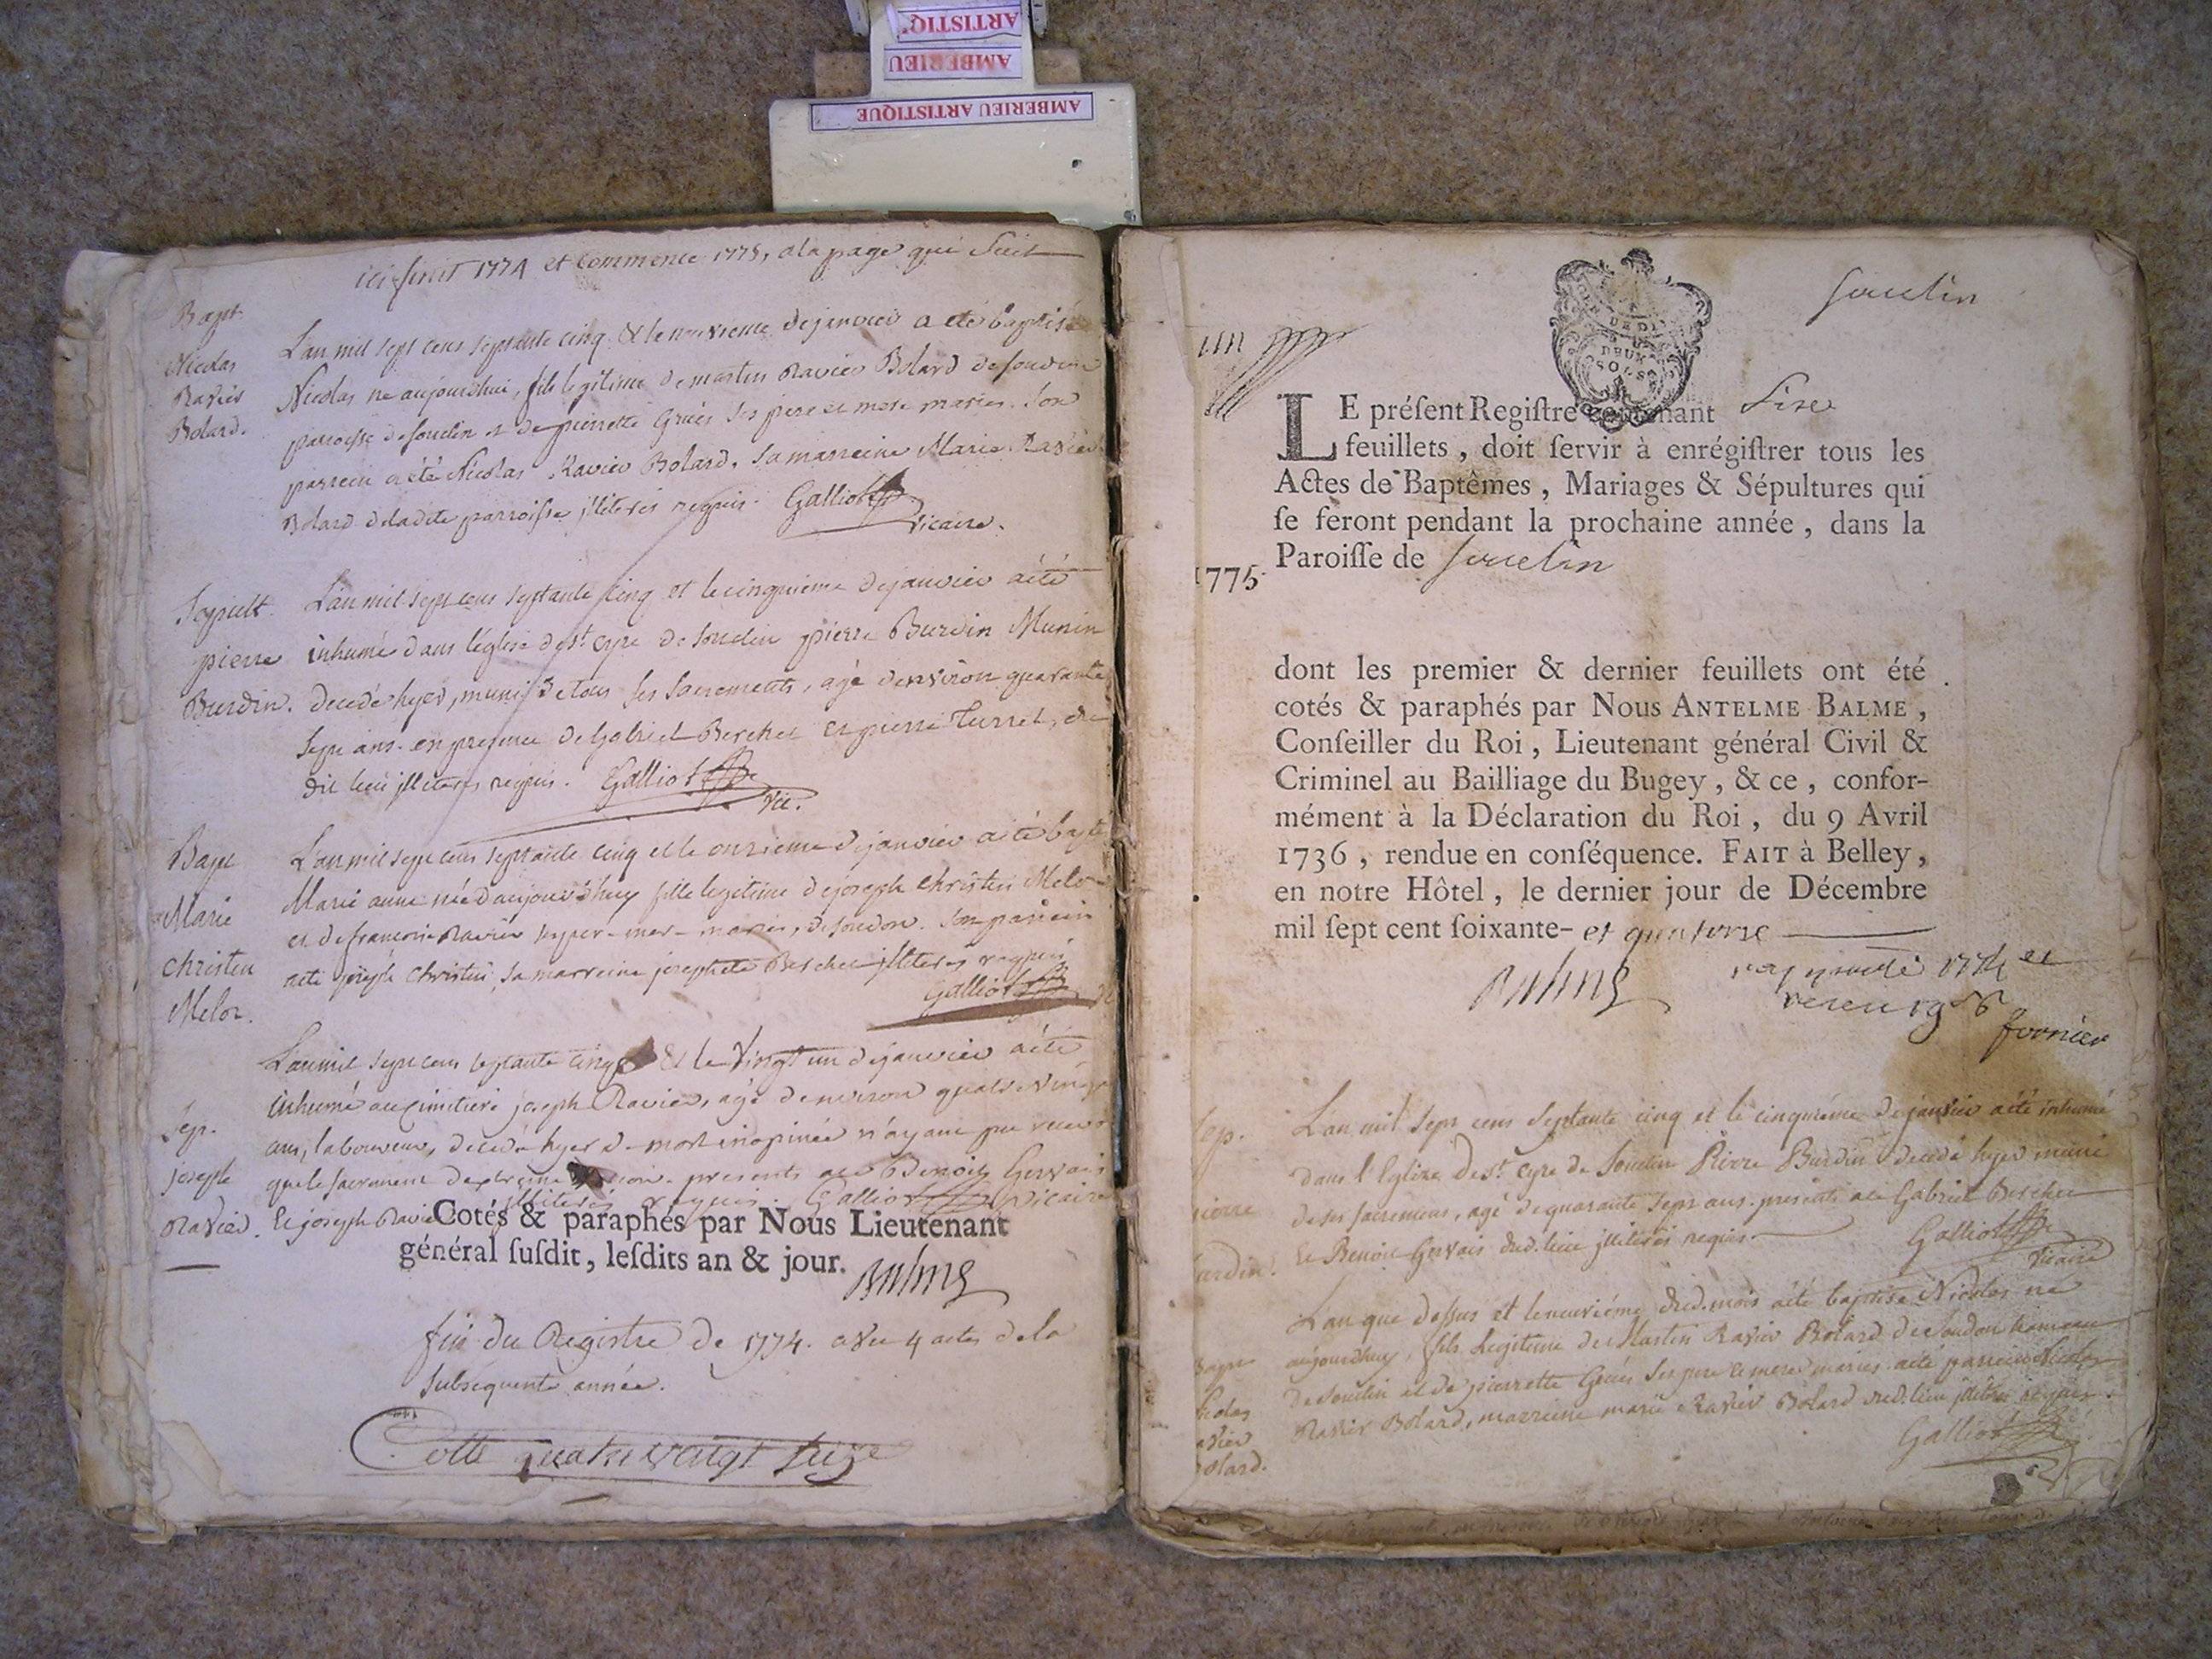 ARTISTIQ
AMBERIEU
AMBERIEU ARTISTIQUE
ici finit 1774 et commence 1775, a la page qui suit
Bapt
Nicolas
Ravier
Bolard.
L'an mil sept cens septante cinq & le neuvieme de janvier a eté baptisé
Nicolas ne aujourdhui, fils legitime de martin Ravier Bolard de soudon
parroisse de souclin et de pierrette Gruès ses pere et mere mariés. son
parrein a été Nicolas Ravier Bolard, sa marreine Marie Ravier
Bolard de la dite parroisse jlliterés requis. Galliot
vicaire.
Sepult.
pierre
Burdin.
L'an mil sept cens septante cinq et le cinquieme de janvier a été
inhumé dans l'église de st. cyre de souclin pierre Burdin Munin
decedé hyer, muni de tous ses sacrements, agé d'environ quarante
sept ans. en presence de Gabriel Berchet et pierre Turrel, du
dit lieu jlliterés requis. Galliot
vic.
Bapt
Marie
christin
Melor.
L'an mil sept cens septante cinq et le onzieme de janvier a été bapt
Marie anne née d'aujourdhuy fille legitime de joseph christin Melor
et de francoise Ravier sy per- mer- mariés, de soudon. son parrein
a eté joseph christin, sa marreine josephete Berchet jlliterés requis
Galliot
Sep.
joseph
Ravier.
L'an mil sept cens septante cinq & le vingt un de janvier a été
inhumé au cimetiere joseph Ravier, agé d'environ quatrevingt
ans, laboureur, decedé hyer de mort inopinée n'ayant pu recevoir
que le sacrement d'extreme onction. presents Benoit Gervais
et joseph Ravier jlliterés requis. Galliot vicaire
Cotés & paraphés par Nous Lieutenant
général ſuſdit, leſdits an & jour. Balme
fin du Registre de 1774. avec 4 actes de la
subsequente année.
Cotte quatrevaingt seize
souclin
DEUX
SOLS
LE préſent Regiſtre contenant Sixe
feuillets, doit ſervir à enrégiſtrer tous les
Actes de Baptêmes, Mariages & Sépultures qui
ſe feront pendant la prochaine année, dans la
Paroiſſe de souclin
1775.
dont les premier & dernier feuillets ont été
cotés & paraphés par Nous ANTELME BALME,
Conſeiller du Roi, Lieutenant général Civil &
Criminel au Bailliage du Bugey, & ce, confor-
mément à la Déclaration du Roi, du 9 Avril
1736, rendue en conſéquence. FAIT à Belley,
en notre Hôtel, le dernier jour de Décembre
mil ſept cent ſoixante- et quatorse
Balme
1774 et
fornier
Sep.
pierre
Burdin.
L'an mil sept cens septante cinq et le cinquiéme de janvier a été inhumé
dans l'Eglize de st. cyre de souclin Pierre Burdin decedé hyer muni
de ses sacremens, agé de quarante sept ans. presents Gabriel Berchet
et Benoit Gervais dud. lieu jlliterés requis. Galliot
vicaire
Bapt
Nicolas
Ravier
Bolard.
L'an que dessus et le neuviéme dud. mois a été baptisé Nicolas né
aujourdhuy, fils legitime de Martin Ravier Bolard de soudon hameau
de souclin et de pierrette Gruès ses pere et mere mariés. a été parrein Nicolas
Ravier Bolard, marreine marie Ravier Bolard dud. lieu jlliterés requis.
Galliot